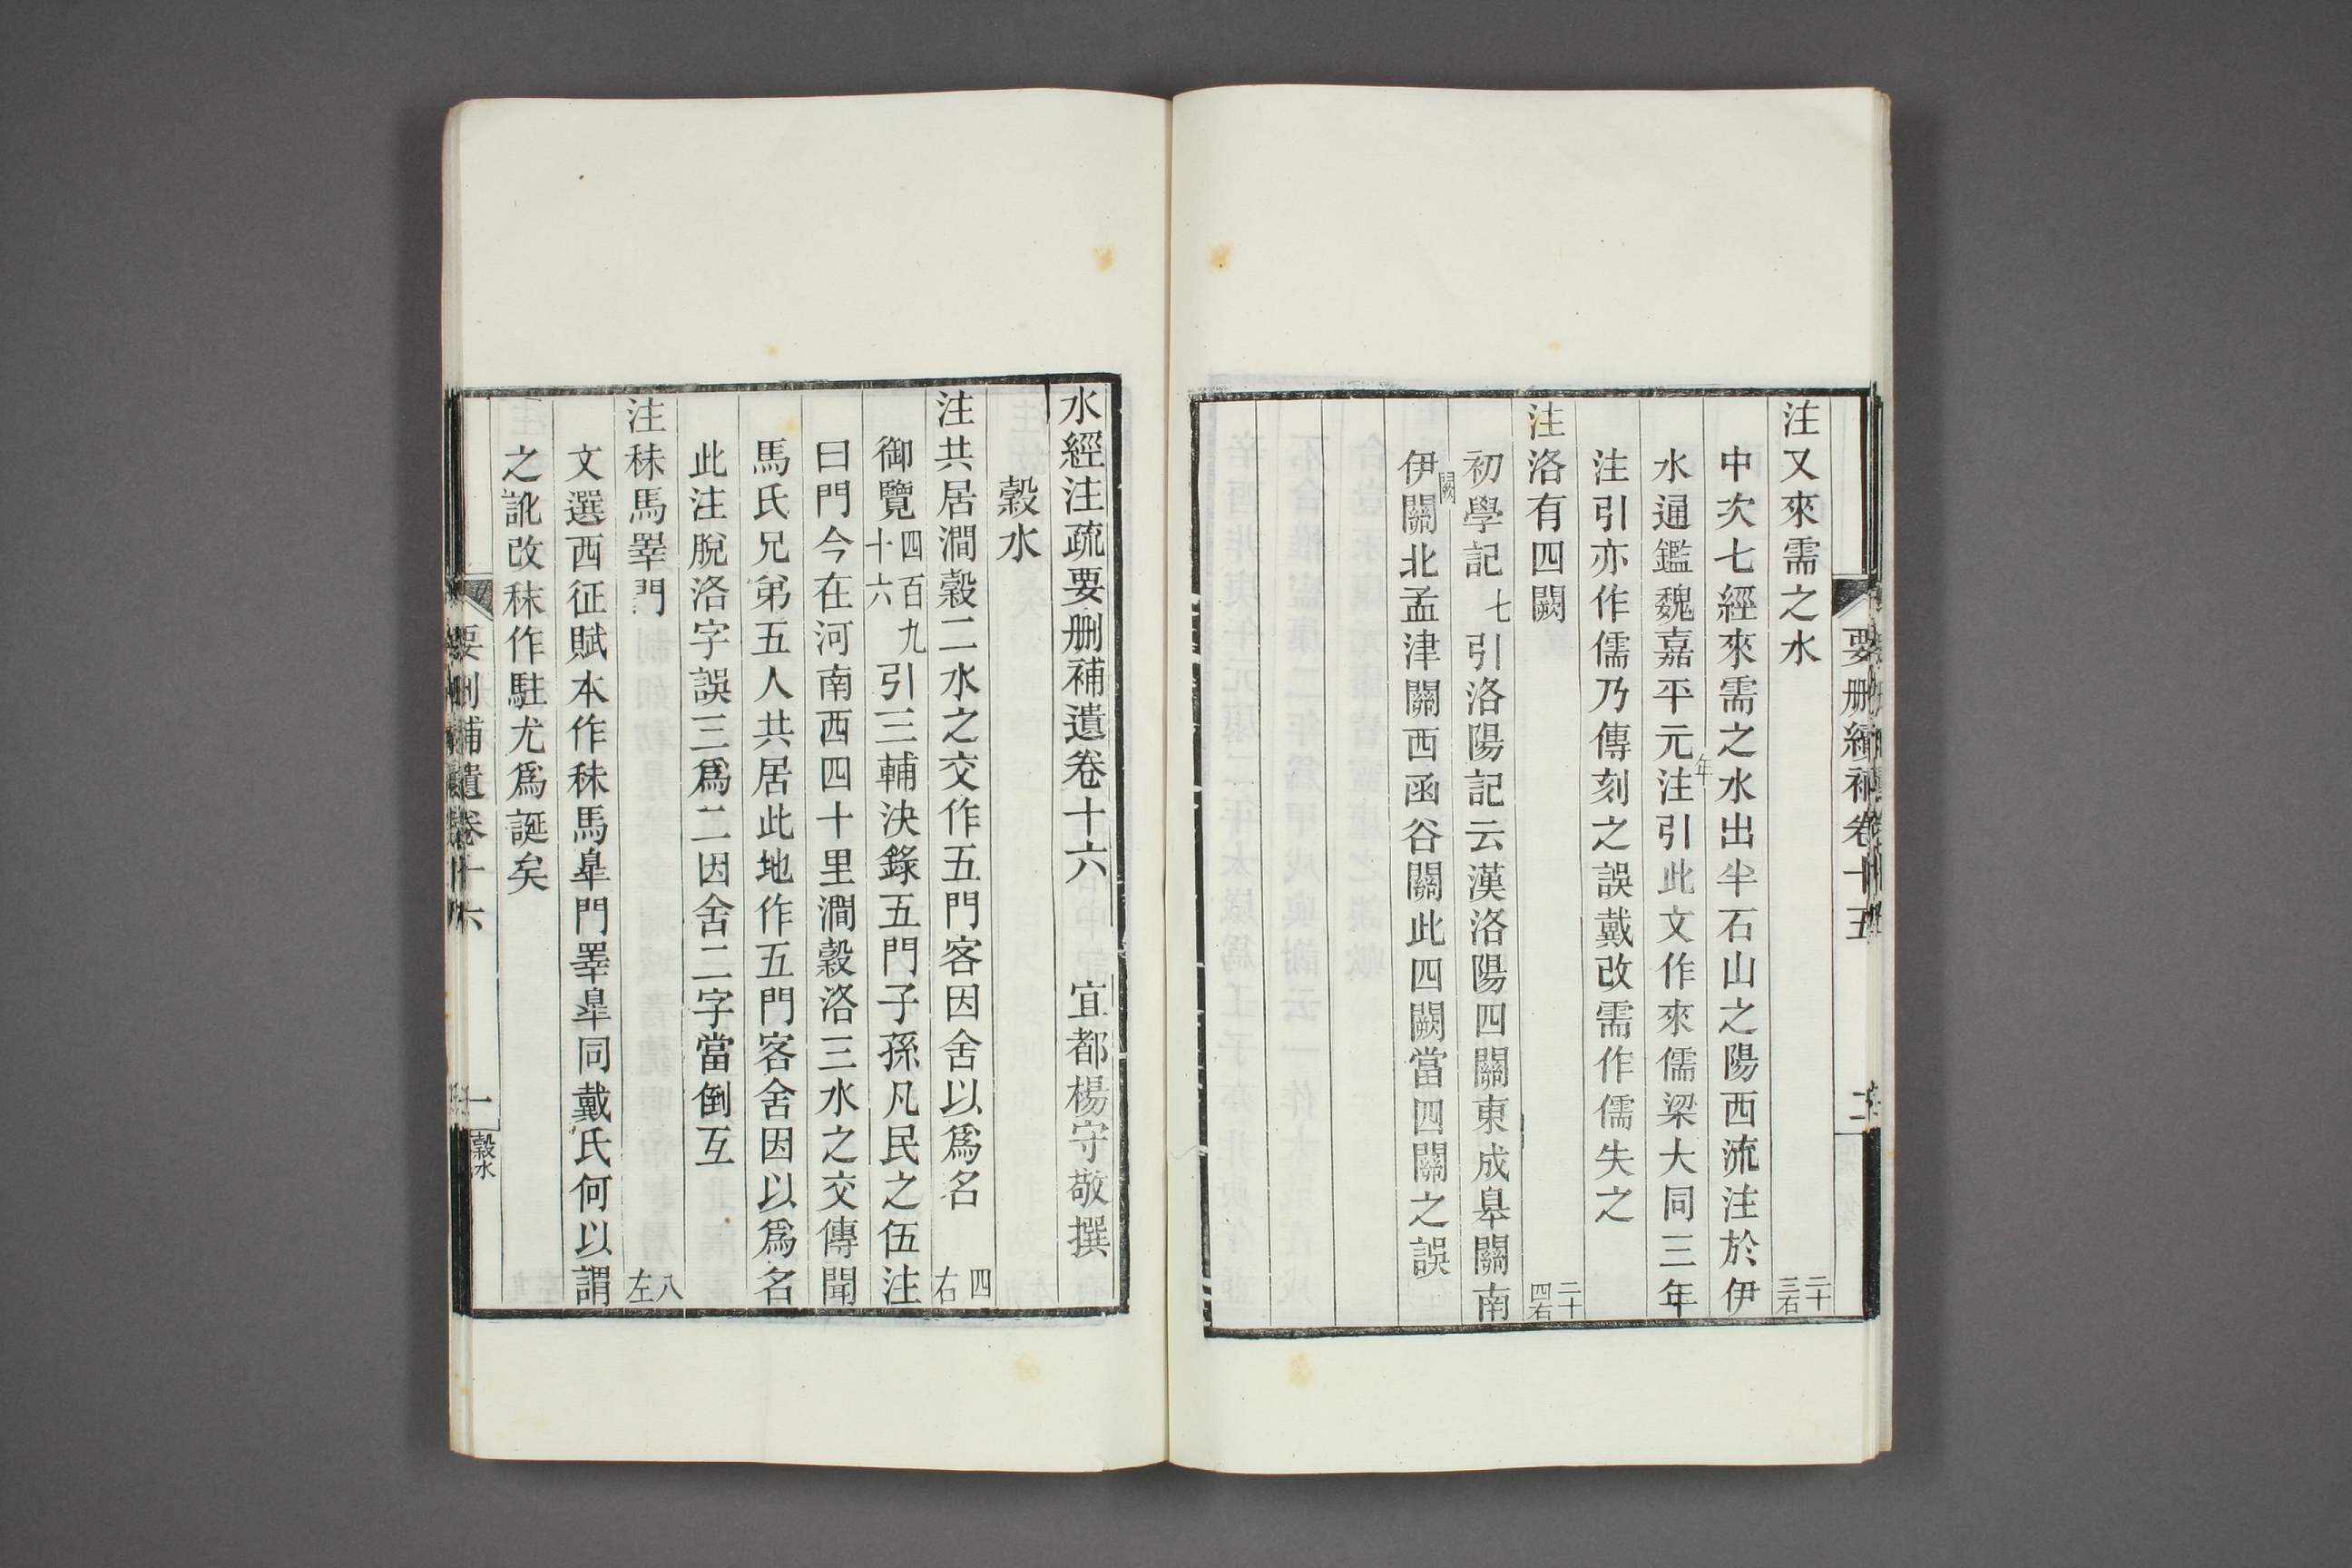 注又來需之水 二十三右
中次七經來需之水出半石山之陽西流注於伊
水通鑑魏嘉平元年注引此文作來儒梁大同三年
注引亦作儒乃傳刻之誤戴改需作儒失之
注洛有四闕 二十四右
初學記七引洛陽記云漢洛陽四關東成皋關南
伊闕關北孟津關西函谷關此四闕當四關之誤
水經注疏要刪補遺卷十六 宜都楊守敬撰
穀水
注共居澗穀二水之交作五門客因舍以爲名 四右
御覽四百九十六引三輔決錄五門子孫凡民之伍注
曰門今在河南西四十里澗穀洛三水之交傳聞
馬氏兄弟五人共居此地作五門客舍因以爲名
此注脫洛字誤三爲二因舍二字當倒互
注秣馬睾門 八左
文選西征賦本作秣馬皐門睾皐同戴氏何以謂
之訛改秣作駐尤爲誕矣
要刪補遺卷十六
一
穀水